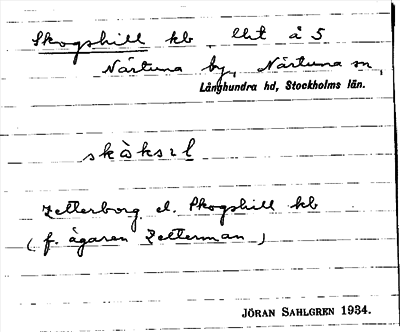 Skogshill kb lht å 5
Närtuna by, Närtuna sn,
Långhundra hd, Stockholms län.
skòksıl
Zetterborg el. Skogshill kb
(f. ägaren Zetterman)
JÖRAN SAHLGREN 1934.